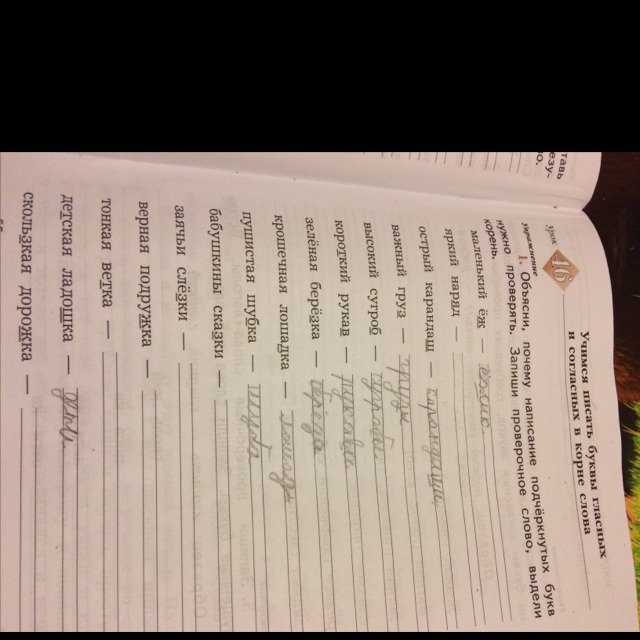 тавь
резу-
во.
Учимся писать буквы гласных
и согласных в корне слова
урок 46
упражнение
1. Объясни, почему написание подчёркнутых букв
нужно проверять. Запиши проверочное слово, выдели
корень.
маленький ёж —
яркий наряд —
острый карандаш — карандаши
важный груз — грузы
высокий сугроб — сугробы
короткий рукав — рукава
зелёная берёзка — берёза
крошечная лошадка — лошадь
пушистая шубка — шуба
бабушкины сказки —
заячьи слёзки —
верная подружка —
тонкая ветка —
детская ладошка —
скользкая дорожка —